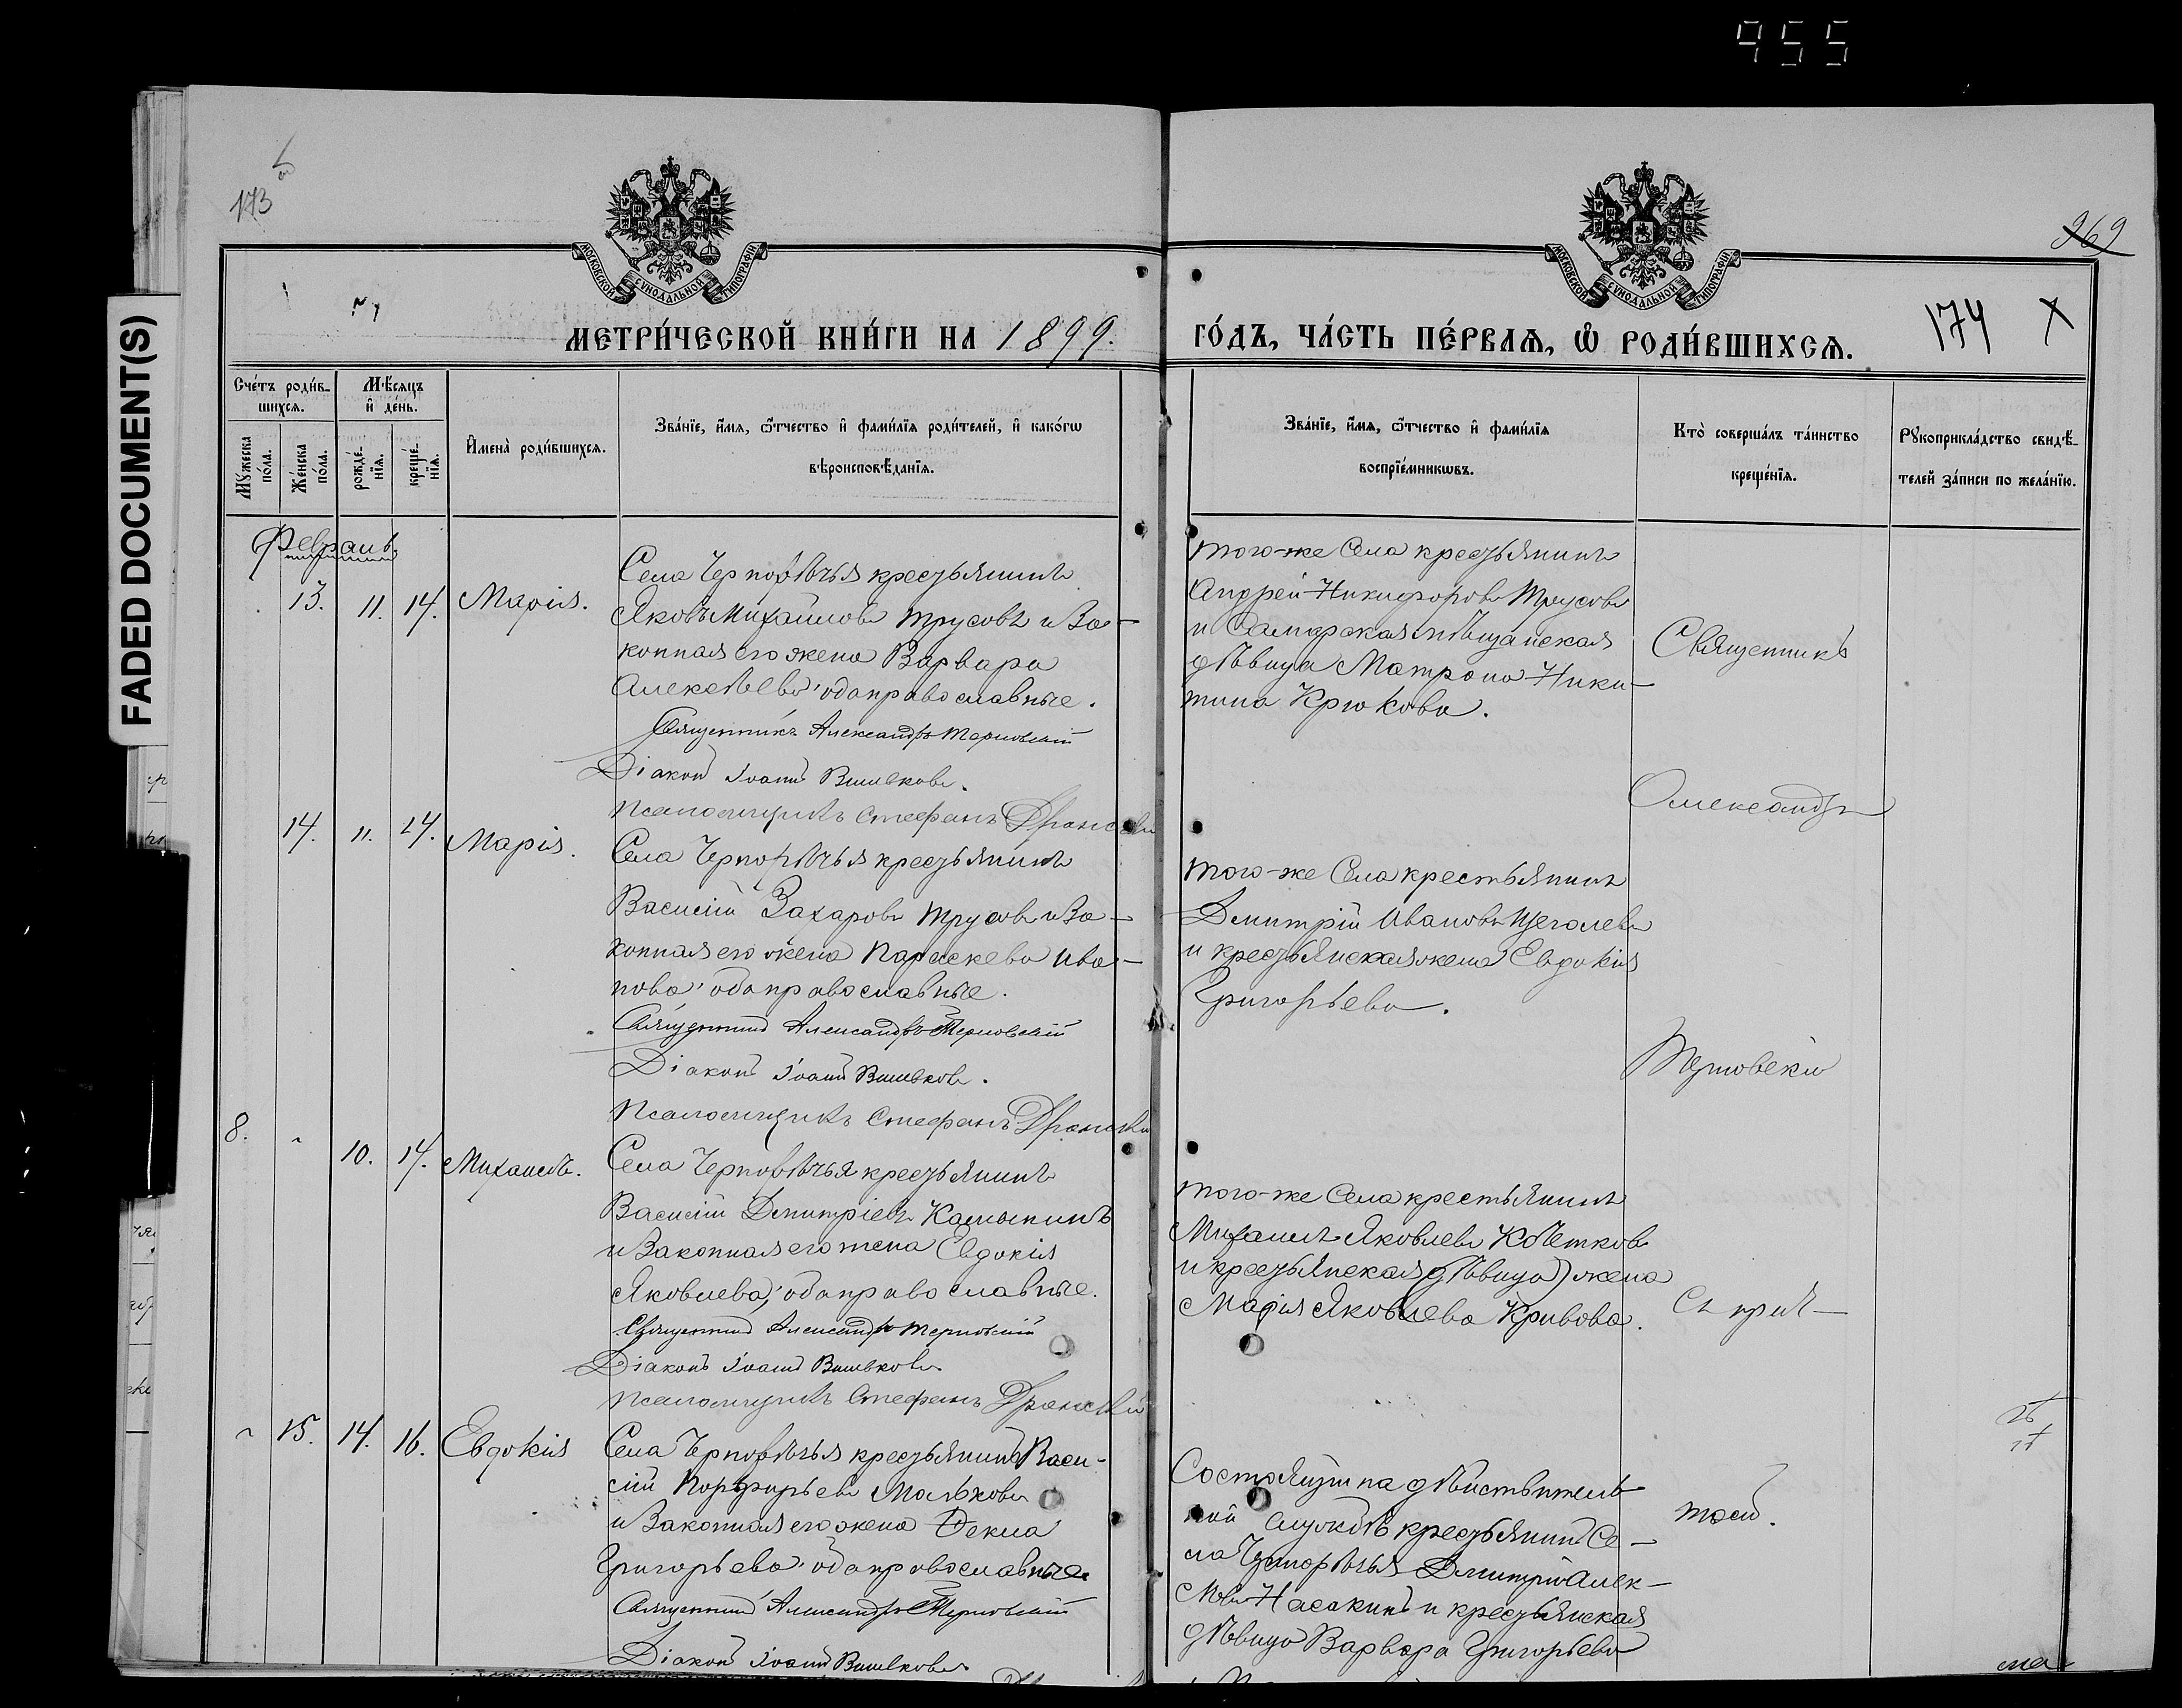 955
FADED DOCUMENT(S)
173
269
МОСКОВСКОЙ СѴНОДАЛЬНОЙ ТИПОГРАФІИ
МОСКОВСКОЙ СѴНОДАЛЬНОЙ ТИПОГРАФІИ
МЕТРИ́ЧЕСКОЙ КНИ́ГИ НА 1899.
ГО́ДЪ, ЧА́СТЬ ПЕ́РВАЯ, Ѿ РОДИ́ВШИХСЯ.
174 X
Сче́тъ роди́в-
шихся.
Мѣ́сяцъ
и҆ де́нь.
Мꙋ́жеска
по́ла.
Же́нска
по́ла.
рожде́-
нїя.
креще́-
нїя.
И҆мена̀ роди́вшихся.
Зва́нїе, и҆́мя, ѻ҆́тчество и҆ фами́лїя роди́телей, и҆ како́гѡ
вѣроисповѣ́данїя.
Зва́нїе, и҆́мя, ѻ҆́тчество и҆ фами́лїя
воспрїе́мникѡвъ.
Кто̀ соверша́лъ та́инство
креще́нїя.
Рꙋкоприкла́дство свидѣ́-
телей за́писи по жела́нїю.
Февраль
13. 11. 14. Марія.
Села Чернорѣчья крестьянинъ
Яковъ Михайловъ Трусовъ и за-
конная его жена Варвара
Алексѣева, оба православные.
Священникъ Александръ Терновскій
Діаконъ Іоаннъ Вишвковъ.
Псаломщикъ Стефанъ
того-же Села крестьянинъ
Андрей Никифоровъ Трусовъ
и Самарская мѣщанская
дѣвица Матрона Ники-
тина Крюкова.
14. 11. 14. Марія.
Села Чернорѣчья крестьянинъ
Василій Захаровъ Трусовъ и за-
конная его жена Параскева Ива-
нова, оба православные.
Священникъ Александръ Терновскій
Діаконъ Іоаннъ
Псаломщикъ Стефанъ
того-же Села крестьянинъ
Димитрій Ивановъ Щеголевъ
и крестьянская жена Евдокія
Григорьева.
8. 10. 14. Михаилъ.
Села Чернорѣчья крестьянинъ
Василій Димитріевъ Калмыкинъ
и законная его жена Евдокія
Яковлева, оба православные.
Священникъ Александръ Терновскій
Діаконъ Іоаннъ
Псаломщикъ Стефанъ
того-же Села крестьянинъ
Михаилъ Яковлевъ
и крестьянская (дѣвица) жена
Марія Яковлева Кривова.
15. 14. 16. Евдокія
Села Чернорѣчья крестьянинъ Васи-
лій Порфирьевъ Мальковъ
и законная его жена Ѳекла
Григорьева, оба православные
Священникъ Александръ Терновскій
Діаконъ Іоаннъ
Состоящій на дѣйствитель-
ной службѣ крестьянинъ Се-
ла Чернорѣчья Димитрій Алек-
Насакинъ и крестьянская
дѣвица Варвара Григорьева
Священникъ
Александръ
Терновскій
съ прич-
томъ.